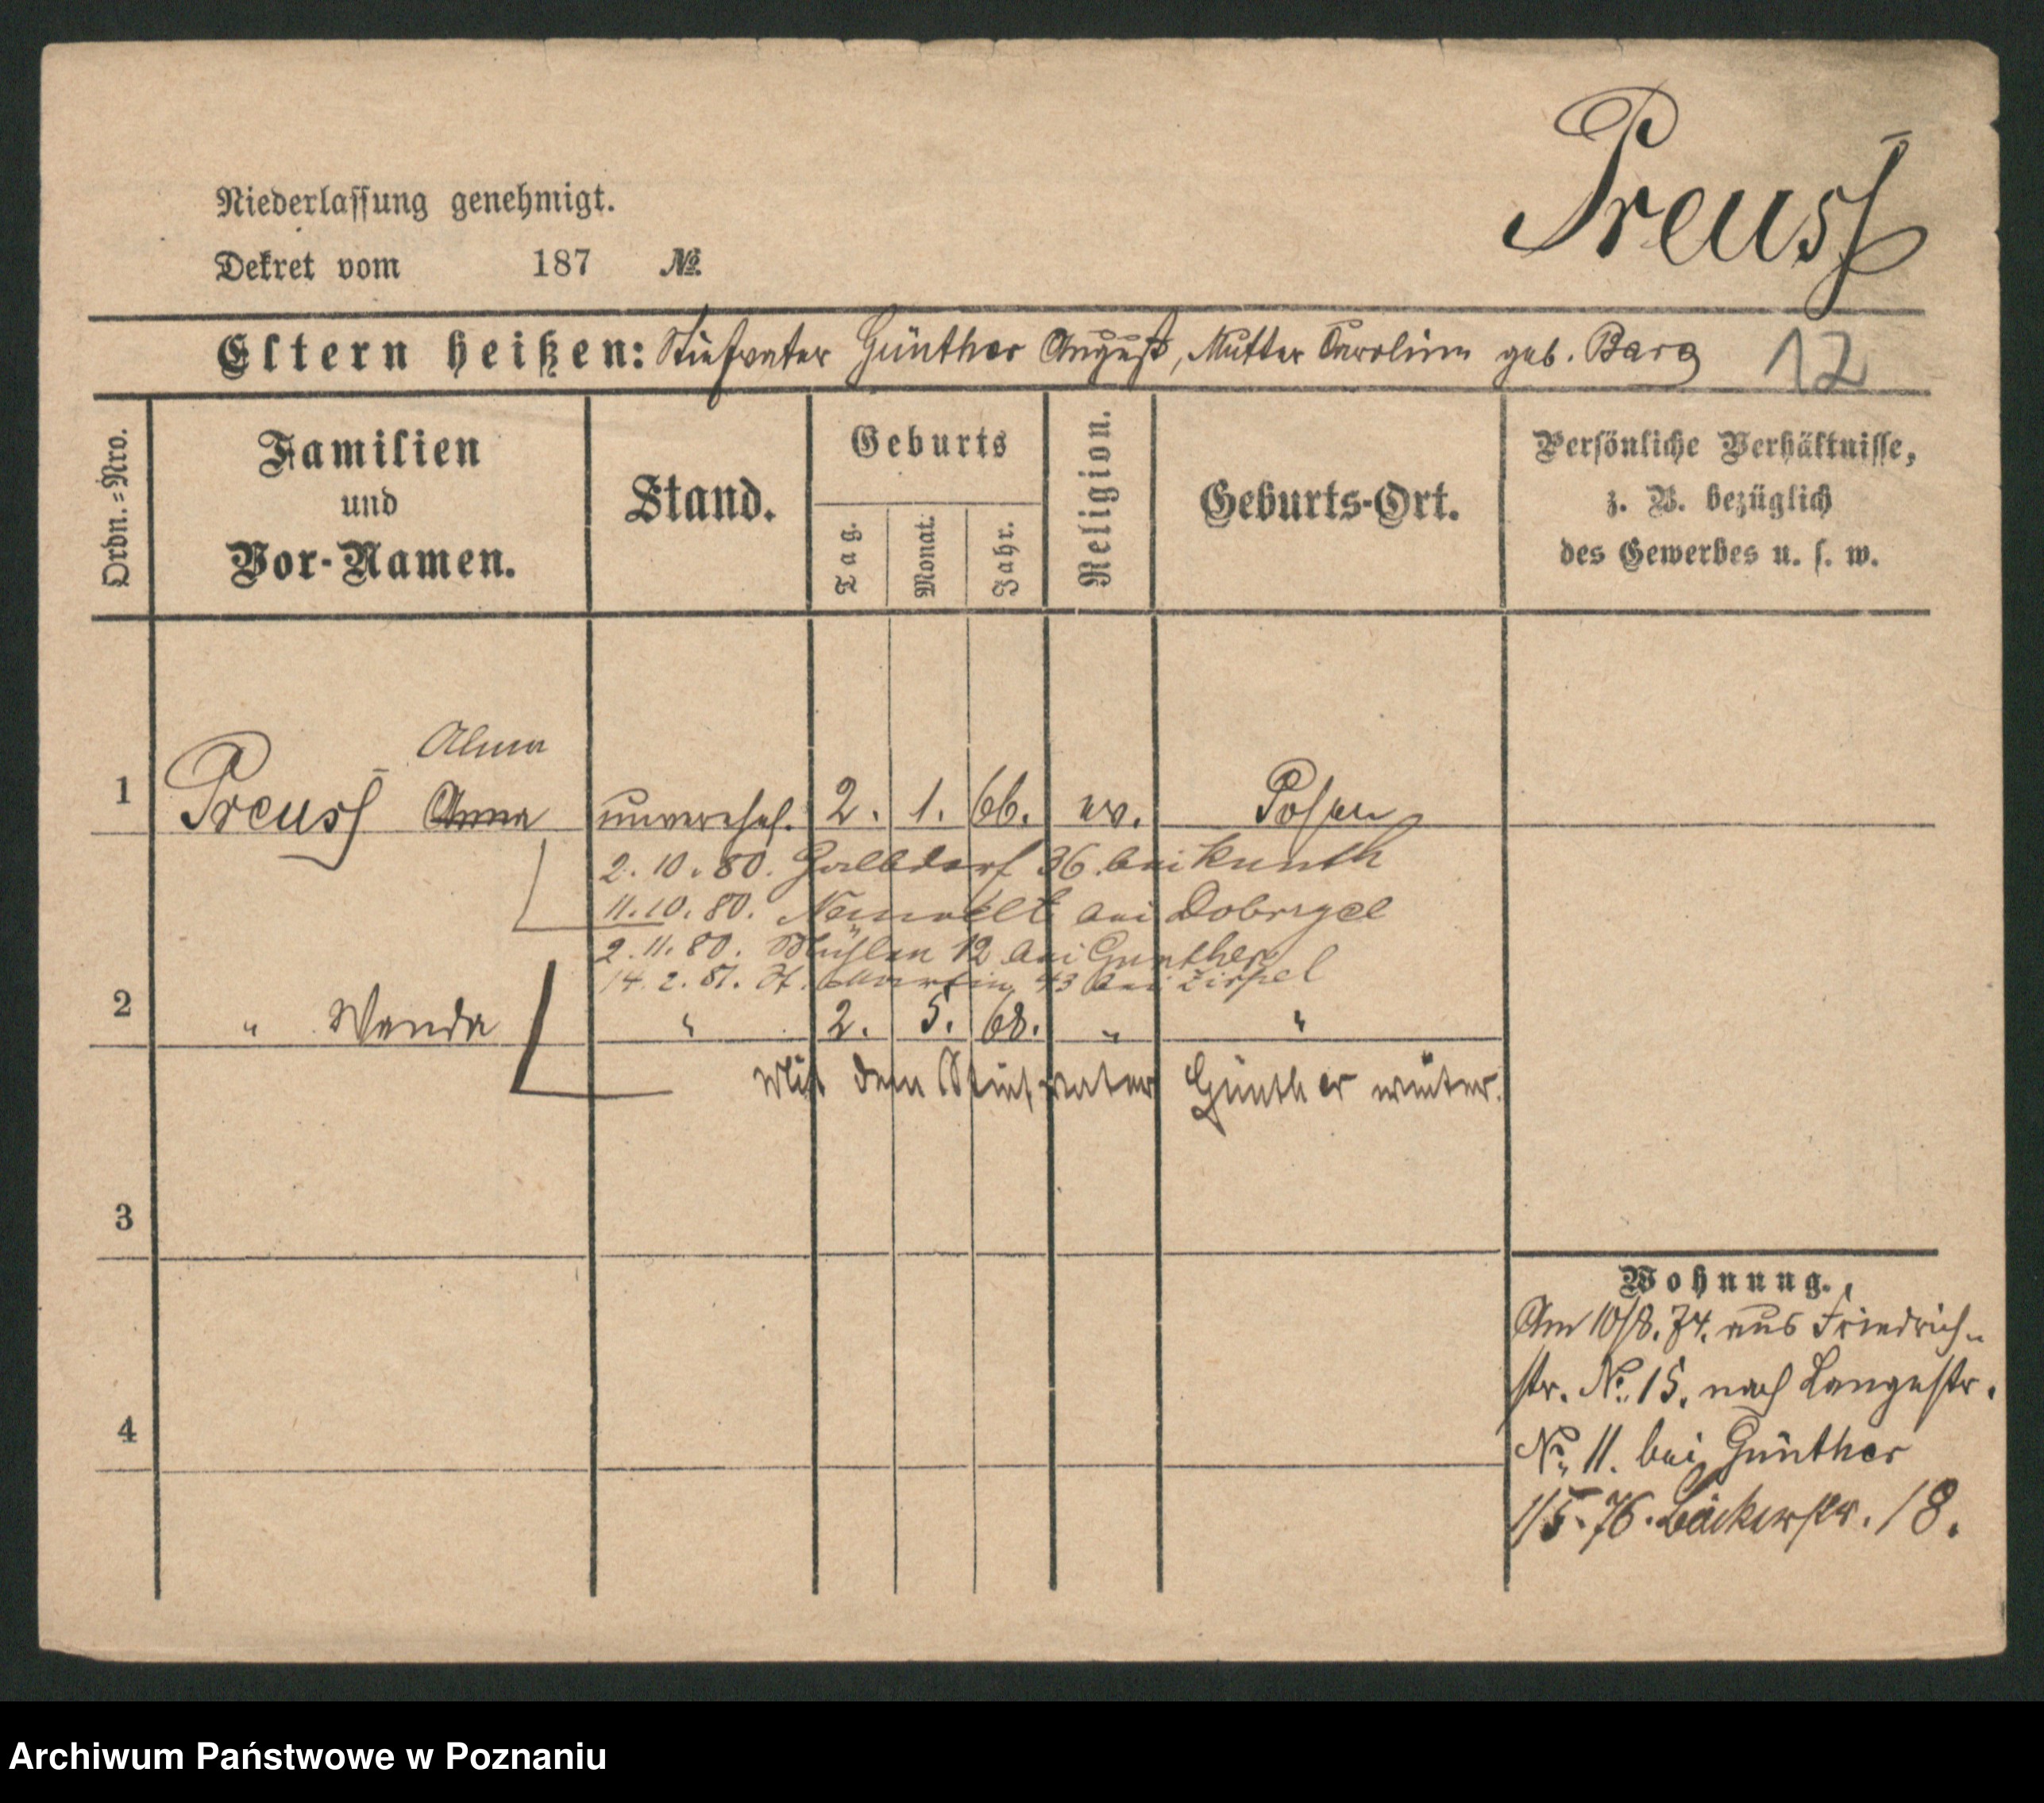 Preuss
Niederlassung genehmigt.
Dekret vom 187 №
Eltern heißen: Stiefvater Günther August, Mutter Caroline geb. Barg
12
Ordn.=Nro.
Familien
und
Vor-Namen.
Stand.
Geburts
Tag.
Monat.
Jahr.
Religion.
Geburts-Ort.
Persönliche Verhältnisse,
z. B. bezüglich
des Gewerbes u. s. w.
Alma
1 Preuss Anna unverehel. 2. 1. 66. ev. Posen
2.10.80. 36 bei Kunth
11.10.80. bei
2.11.80. Mühlen 12 bei Gunther
14.2.81. St. Martin 43 bei Zirpel
2 " Wanda " 2. 5. 68. " "
Mit dem Stiefvater Günther weiter.
3
4
Wohnung.
Am 10/8.74. aus Friedrich-
str. No. 15. nach Langestr.
No. 11. bei Günther
1/5.76. Bäckerstr. 18.
Archiwum Państwowe w Poznaniu